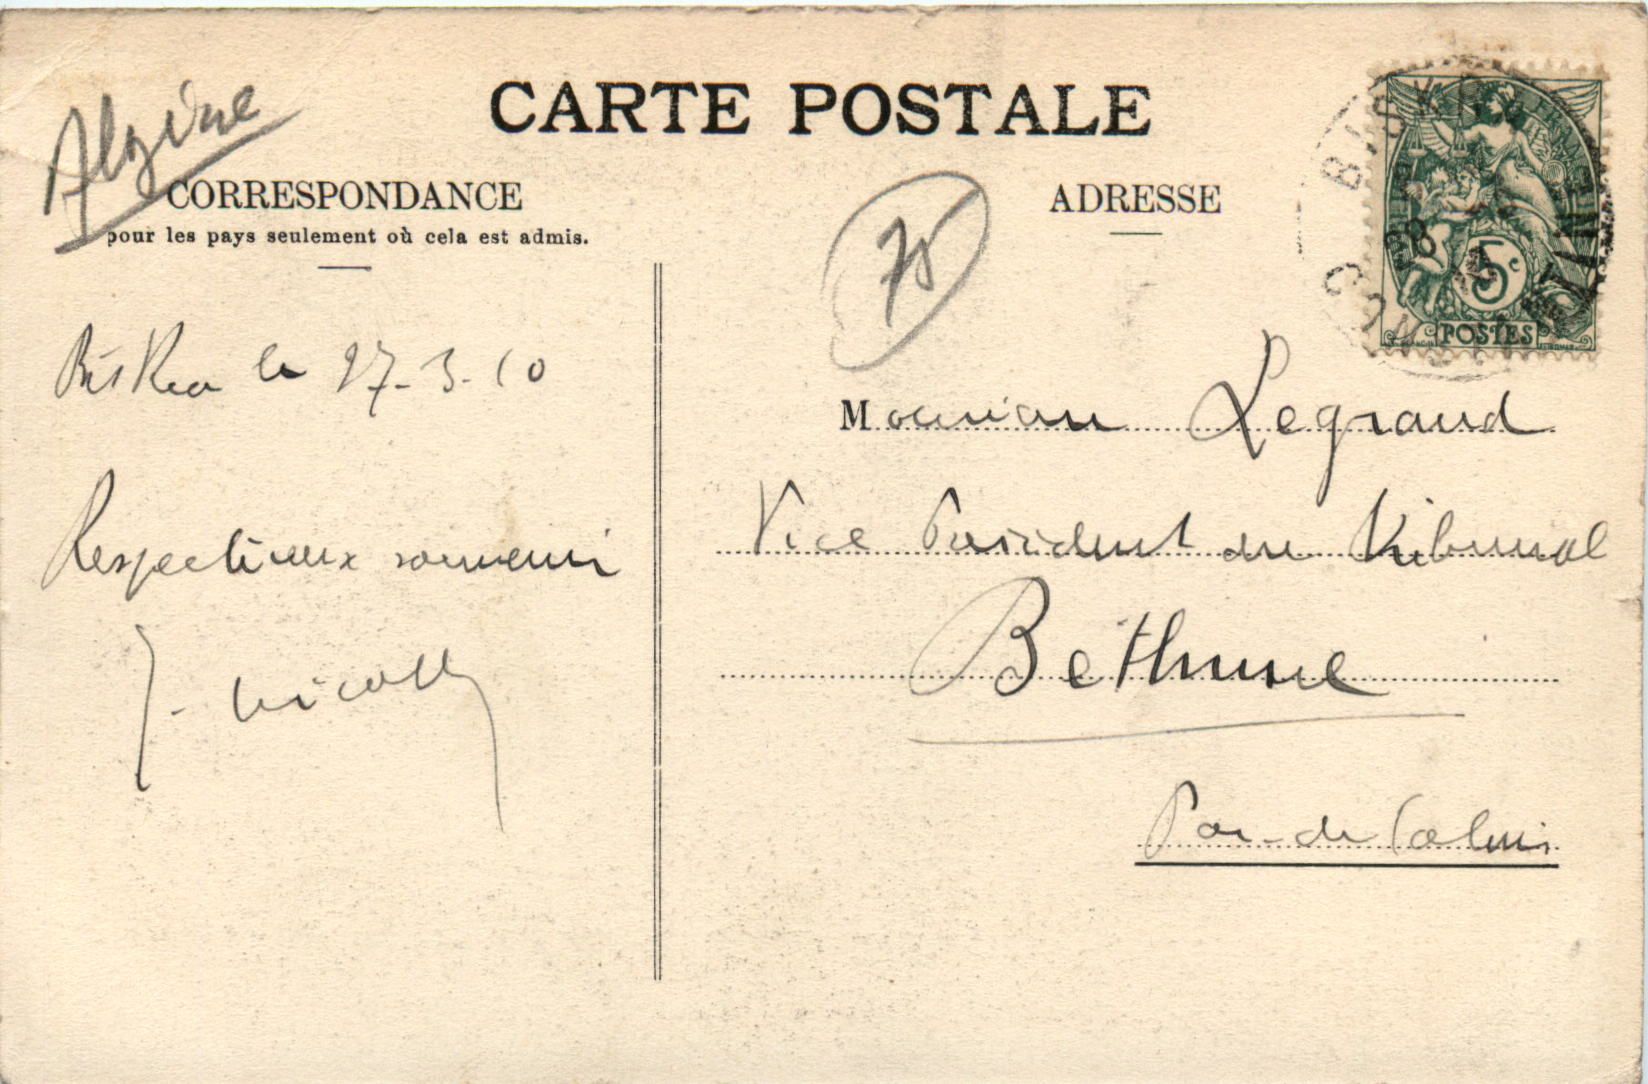 Algérie
CARTE POSTALE
CORRESPONDANCE
pour les pays seulement où cela est admis.
ADRESSE
75
BISKRA
CONSTANTINE
28
5c
POSTES
Biskra le 27-3-10
Respectueux souvenir
J. Nicolle
Monsieur Legrand
Vice Président du Tribunal
Béthune
Pas-de Calais